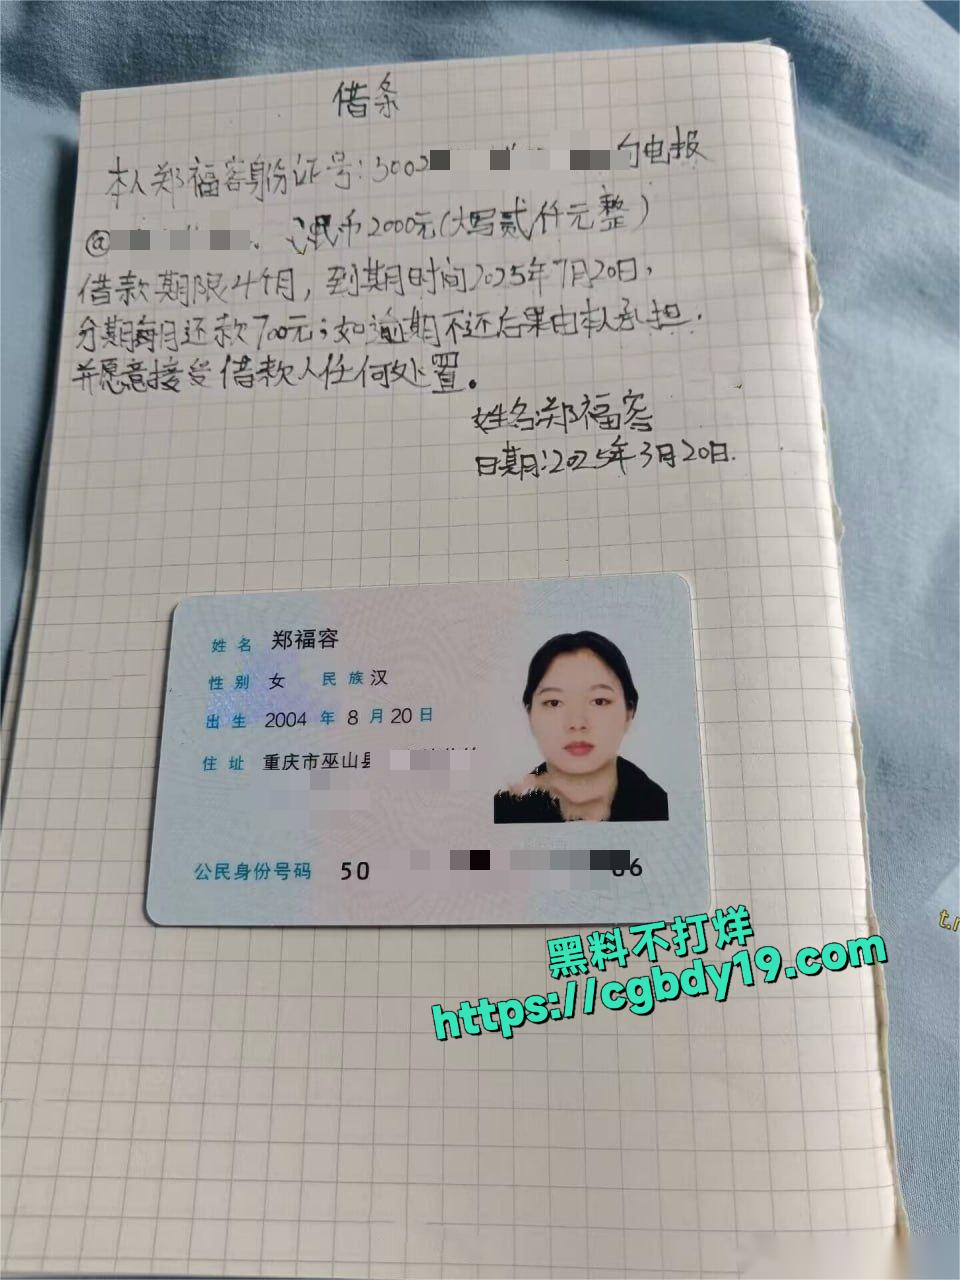 借条
本人郑福容身份证号:5002 的电报
@ 民币2000元(大写贰仟元整)
借款期限4个月,到期时间2025年7月20日,
分期每月还款700元;如逾期不还后果由本人承担.
并愿意接受借款人任何处置。
姓名:郑福容
日期:2025年3月20日.
姓名 郑福容
性别 女 民族 汉
出生 2004 年 8 月 20 日
住址 重庆市巫山县
公民身份号码 50 66
黑料不打烊
https://cgbdy19.com